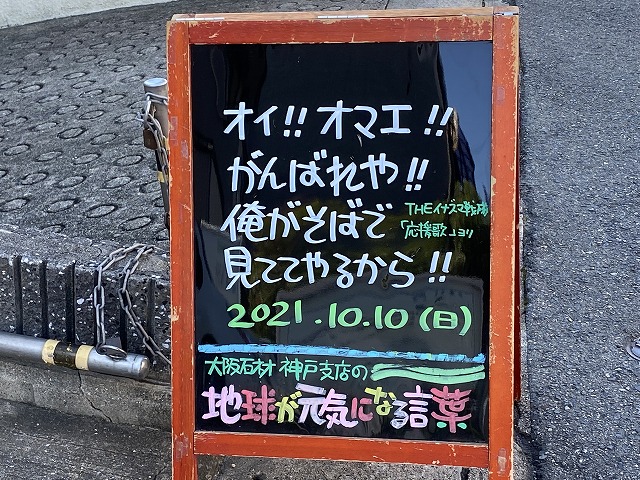 オイ!! オマエ!!
がんばれや!!
俺がそばで
THEイナズマ戦隊
「応援歌」ヨリ
見ててやるから!!
2021.10.10(日)
大阪石材 神戸支店の
地球が元気になる言葉